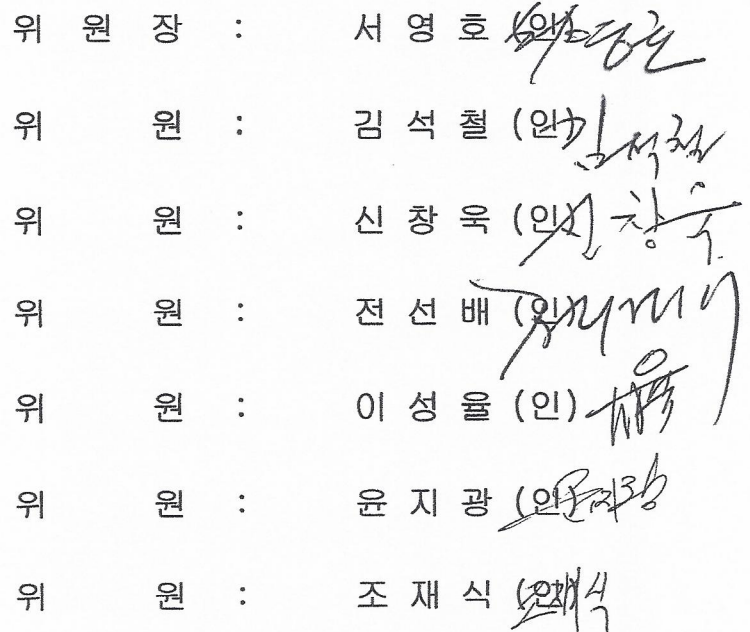 위 원 장 : 서 영 호 (인)
위 원 : 김 석 철 (인) 김석철
위 원 : 신 창 욱 (인) 신창욱
위 원 : 전 선 배 (인)
위 원 : 이 성 율 (인)
위 원 : 윤 지 광 (인) 윤지광
위 원 : 조 재 식 (인) 조재식